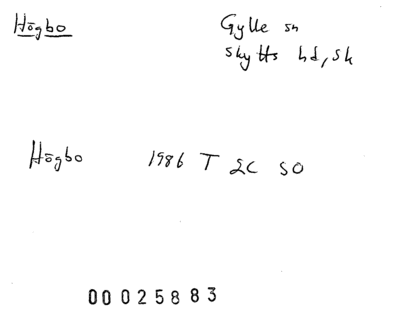 Högbo
Gylle sn
Skytts hd, Sk
Högbo 1986 T 2C SO
00025883